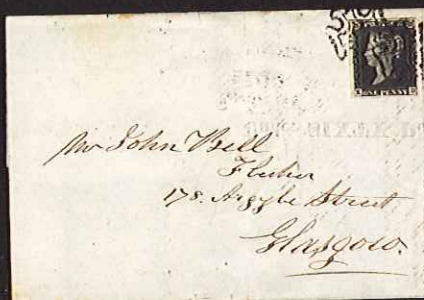 ONE PENNY
Mr John Bell
Flesher
178. Argyle Street
Glasgow.